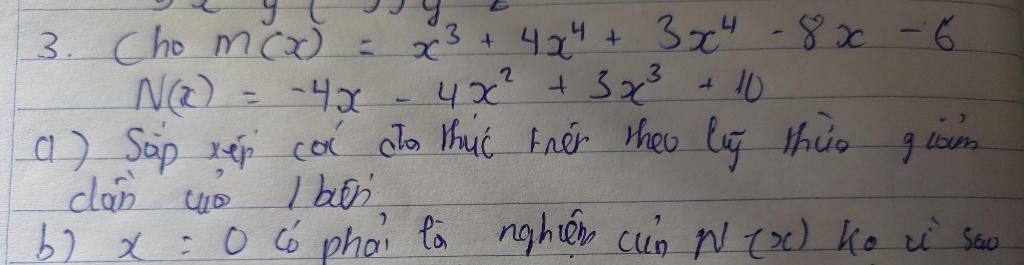 3. Cho M(x) = x³ + 4x⁴ + 3x⁴ - 8x - 6
N(x) = -4x - 4x² + 3x³ + 10
a) Sắp xếp các đa thức trên theo lũy thừa giảm
dần của 1 biến
b) x = 0 có phải là nghiệm của N(x) ko vì sao